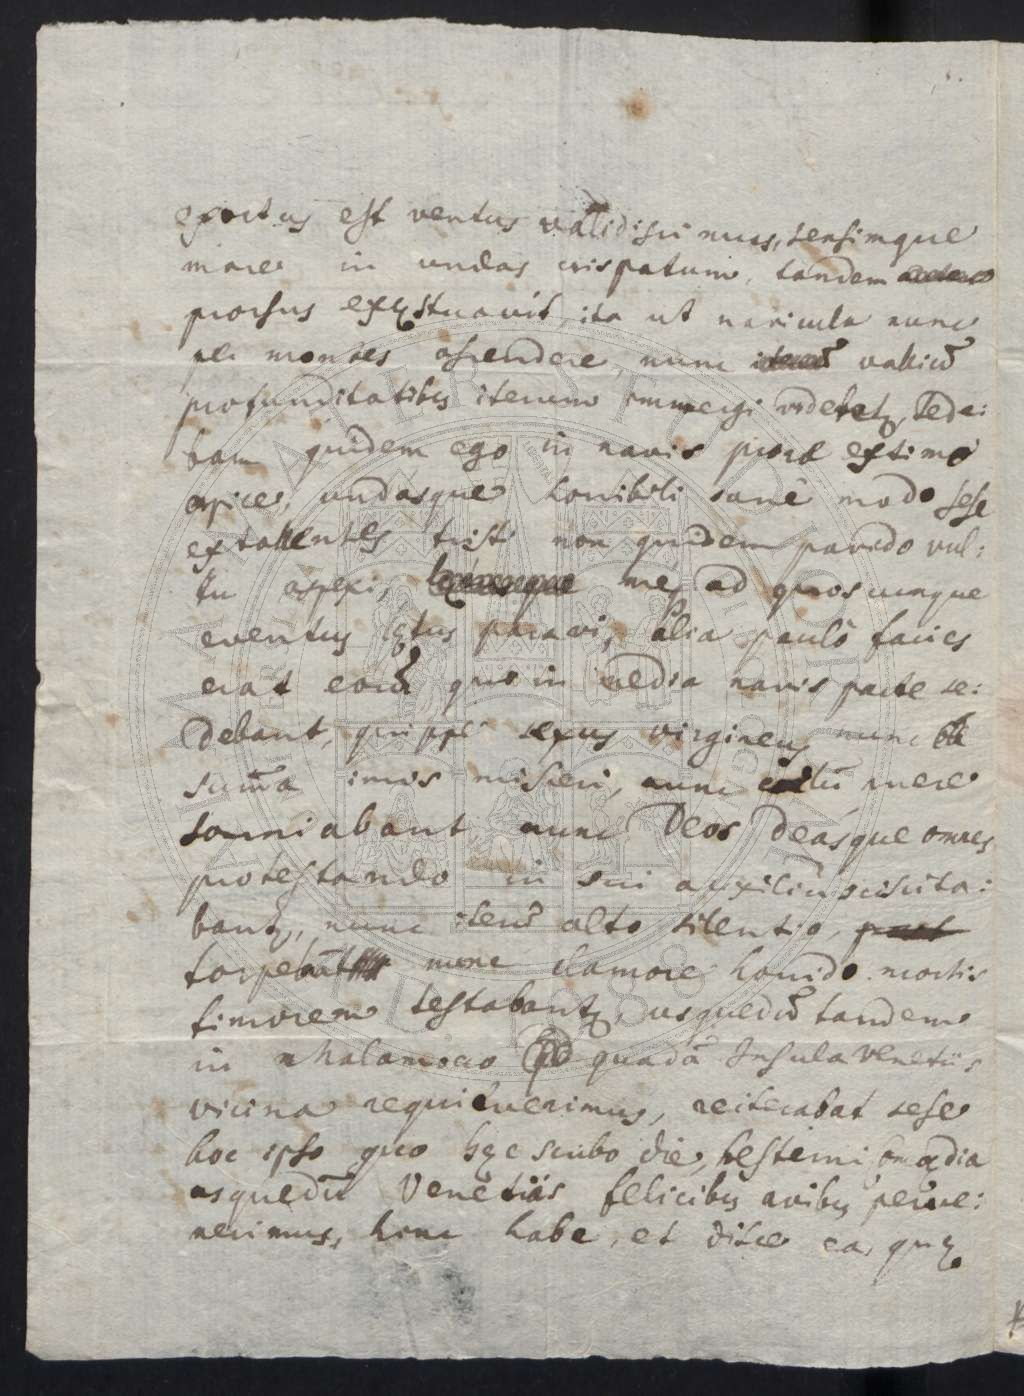 exortus est ventus validissimus, sensimque
mare in undas crispatum, tandem
prorsus exęstuavit, ita ut navicula nunc
per montes ascendere, nunc valliū
profunditatibus iterum immergi videbatur, sede:
bam quidem ego in navis prora extimo
apice, undasque horribili sane modo sese
extollentes tristi non quidem pavido vul:
tu aspexi, meque ad quoscunque
eventus lętus paravi, alia paulò facies
erat eorū quę in media navis parte se:
debant, quippe sexus virgineus nunc
suma imis misceri, nunc cœlū ruere
somniabant, nunc Deos Deasque omnes
protestando in sui auxiliū sciscita:
bantur, nunc iterū alto silentio
torpebāt nunc clamore horrido mortis
timorem testabantur, usquedū tandem
in Malamoco quadā Insula Venetiis
vicina requieverimus, reiterabat sese
hoc ipso quo hęc scribo die, hesterni
usquedū Venetias felicibus avibus perve:
nerimus, hinc habe, et disce ea, quę